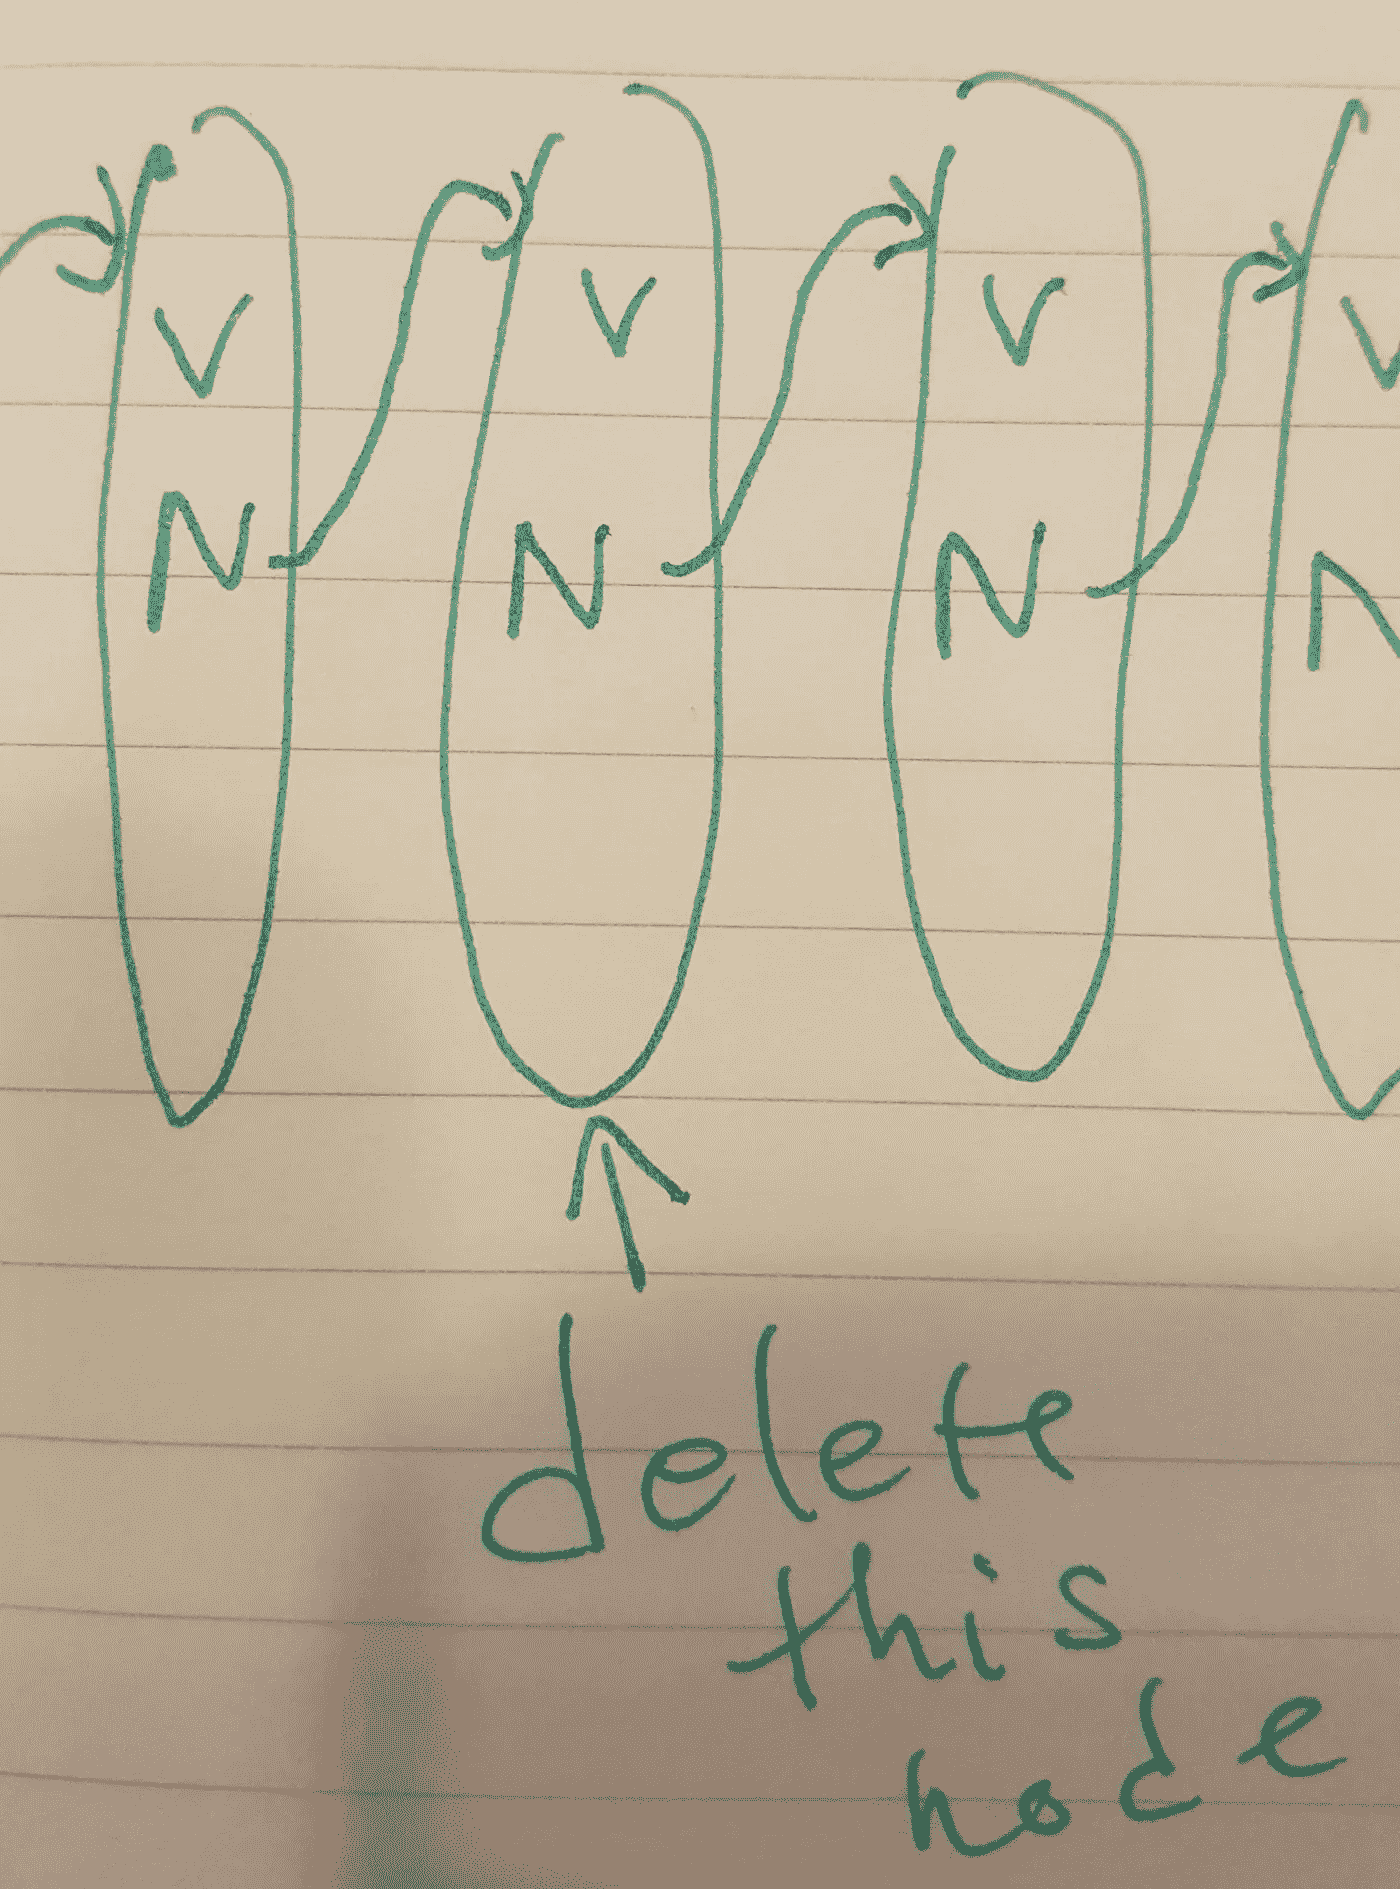 V V V V
N N N N
delete
this
node